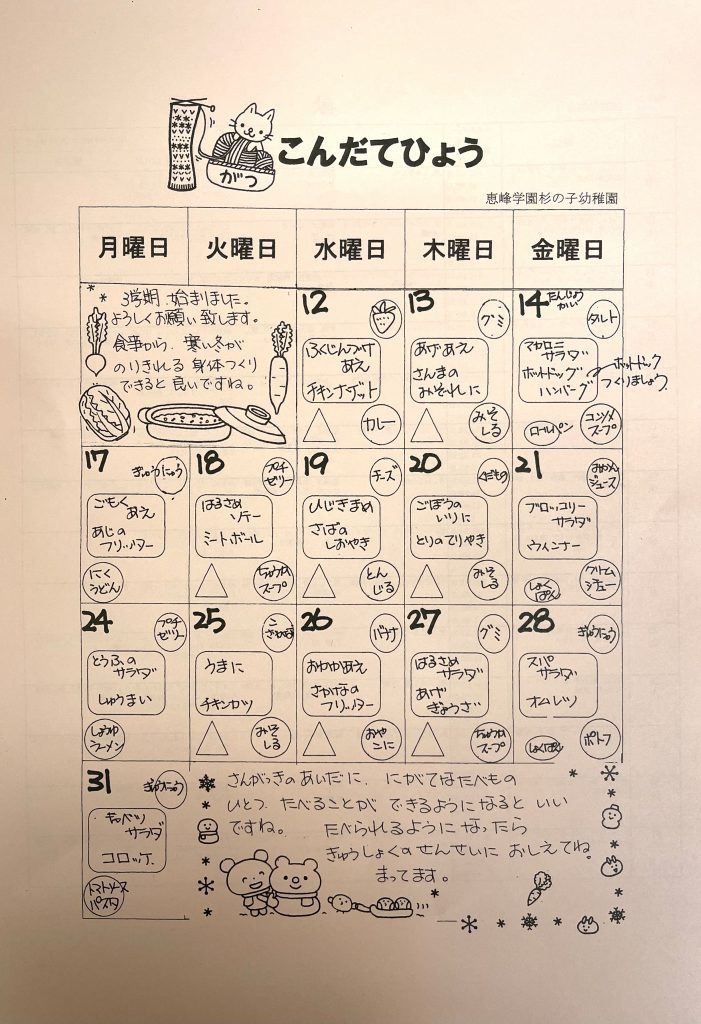 1がつ こんだてひょう
恵峰学園杉の子幼稚園
月曜日 火曜日 水曜日 木曜日 金曜日
3学期 始まりました。
よろしくお願い致します。
食事から、寒い冬が
のりきれる 身体つくり
できると 良いですね。
12
ふくじんづけ
あえ
チキンナゲット
カレー
13
グミ
あげあえ
さんまの
みぞれに
みそ
しる
14 たんじょう
かい
タルト
マカロニ
サラダ
ホットドッグ
ハンバーグ
ホットドック
つくりましょう
ロールパン
コンソメ
スープ
17
ぎゅうにゅう
ごもく
あえ
あじの
フリッター
にく
うどん
18
プチ
ゼリー
はるさめ
ソテー
ミートボール
ちゅうか
スープ
19
チーズ
ひじきまめ
さばの
しおやき
とん
じる
20
くだもの
ごぼうの
いりに
とりのてりやき
みそ
しる
21
みかん
ジュース
ブロッコリー
サラダ
ウィンナー
しょく
ぱん
クリーム
シチュー
24
プチ
ゼリー
とうふの
サラダ
しゅうまい
しょうゆ
ラーメン
25
うまに
チキンカツ
みそ
しる
26
バナナ
おかかあえ
さかなの
フリッター
おや
こに
27
グミ
はるさめ
サラダ
あげ
ぎょうざ
ちゅうか
スープ
28
ぎゅうにゅう
スパ
サラダ
オムレツ
しょくぱん
ポトフ
31
ぎゅうにゅう
キャベツ
サラダ
コロッケ
トマトソース
パスタ
さんがっきのあいだに、にがてなたべもの
ひとつ たべることが できるようになると いい
ですね。 たべられるように なったら
きゅうしょくのせんせいに おしえてね。
まってます。